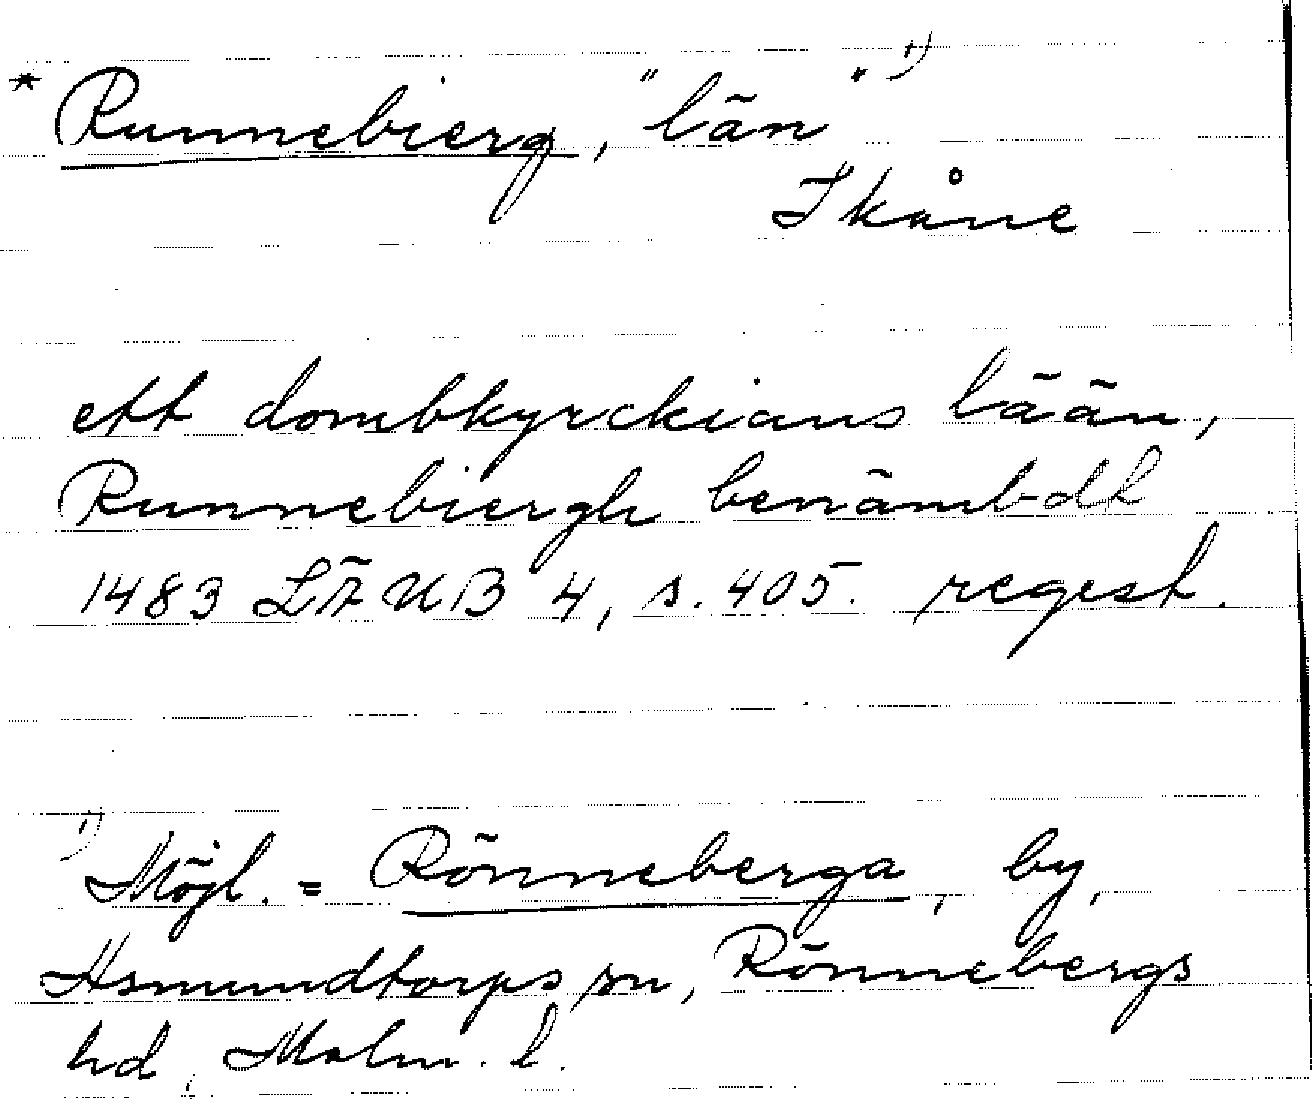 * Runnebierg, "län" 1)
Skåne
ett dombkyrckians lään,
Runnebiergh benämbdt
1483 LÄUB 4, s. 405. regest.
1) Möjl. = Rönneberga, by,
Asmundtorps sn, Rönnebergs
hd, Malm. l.